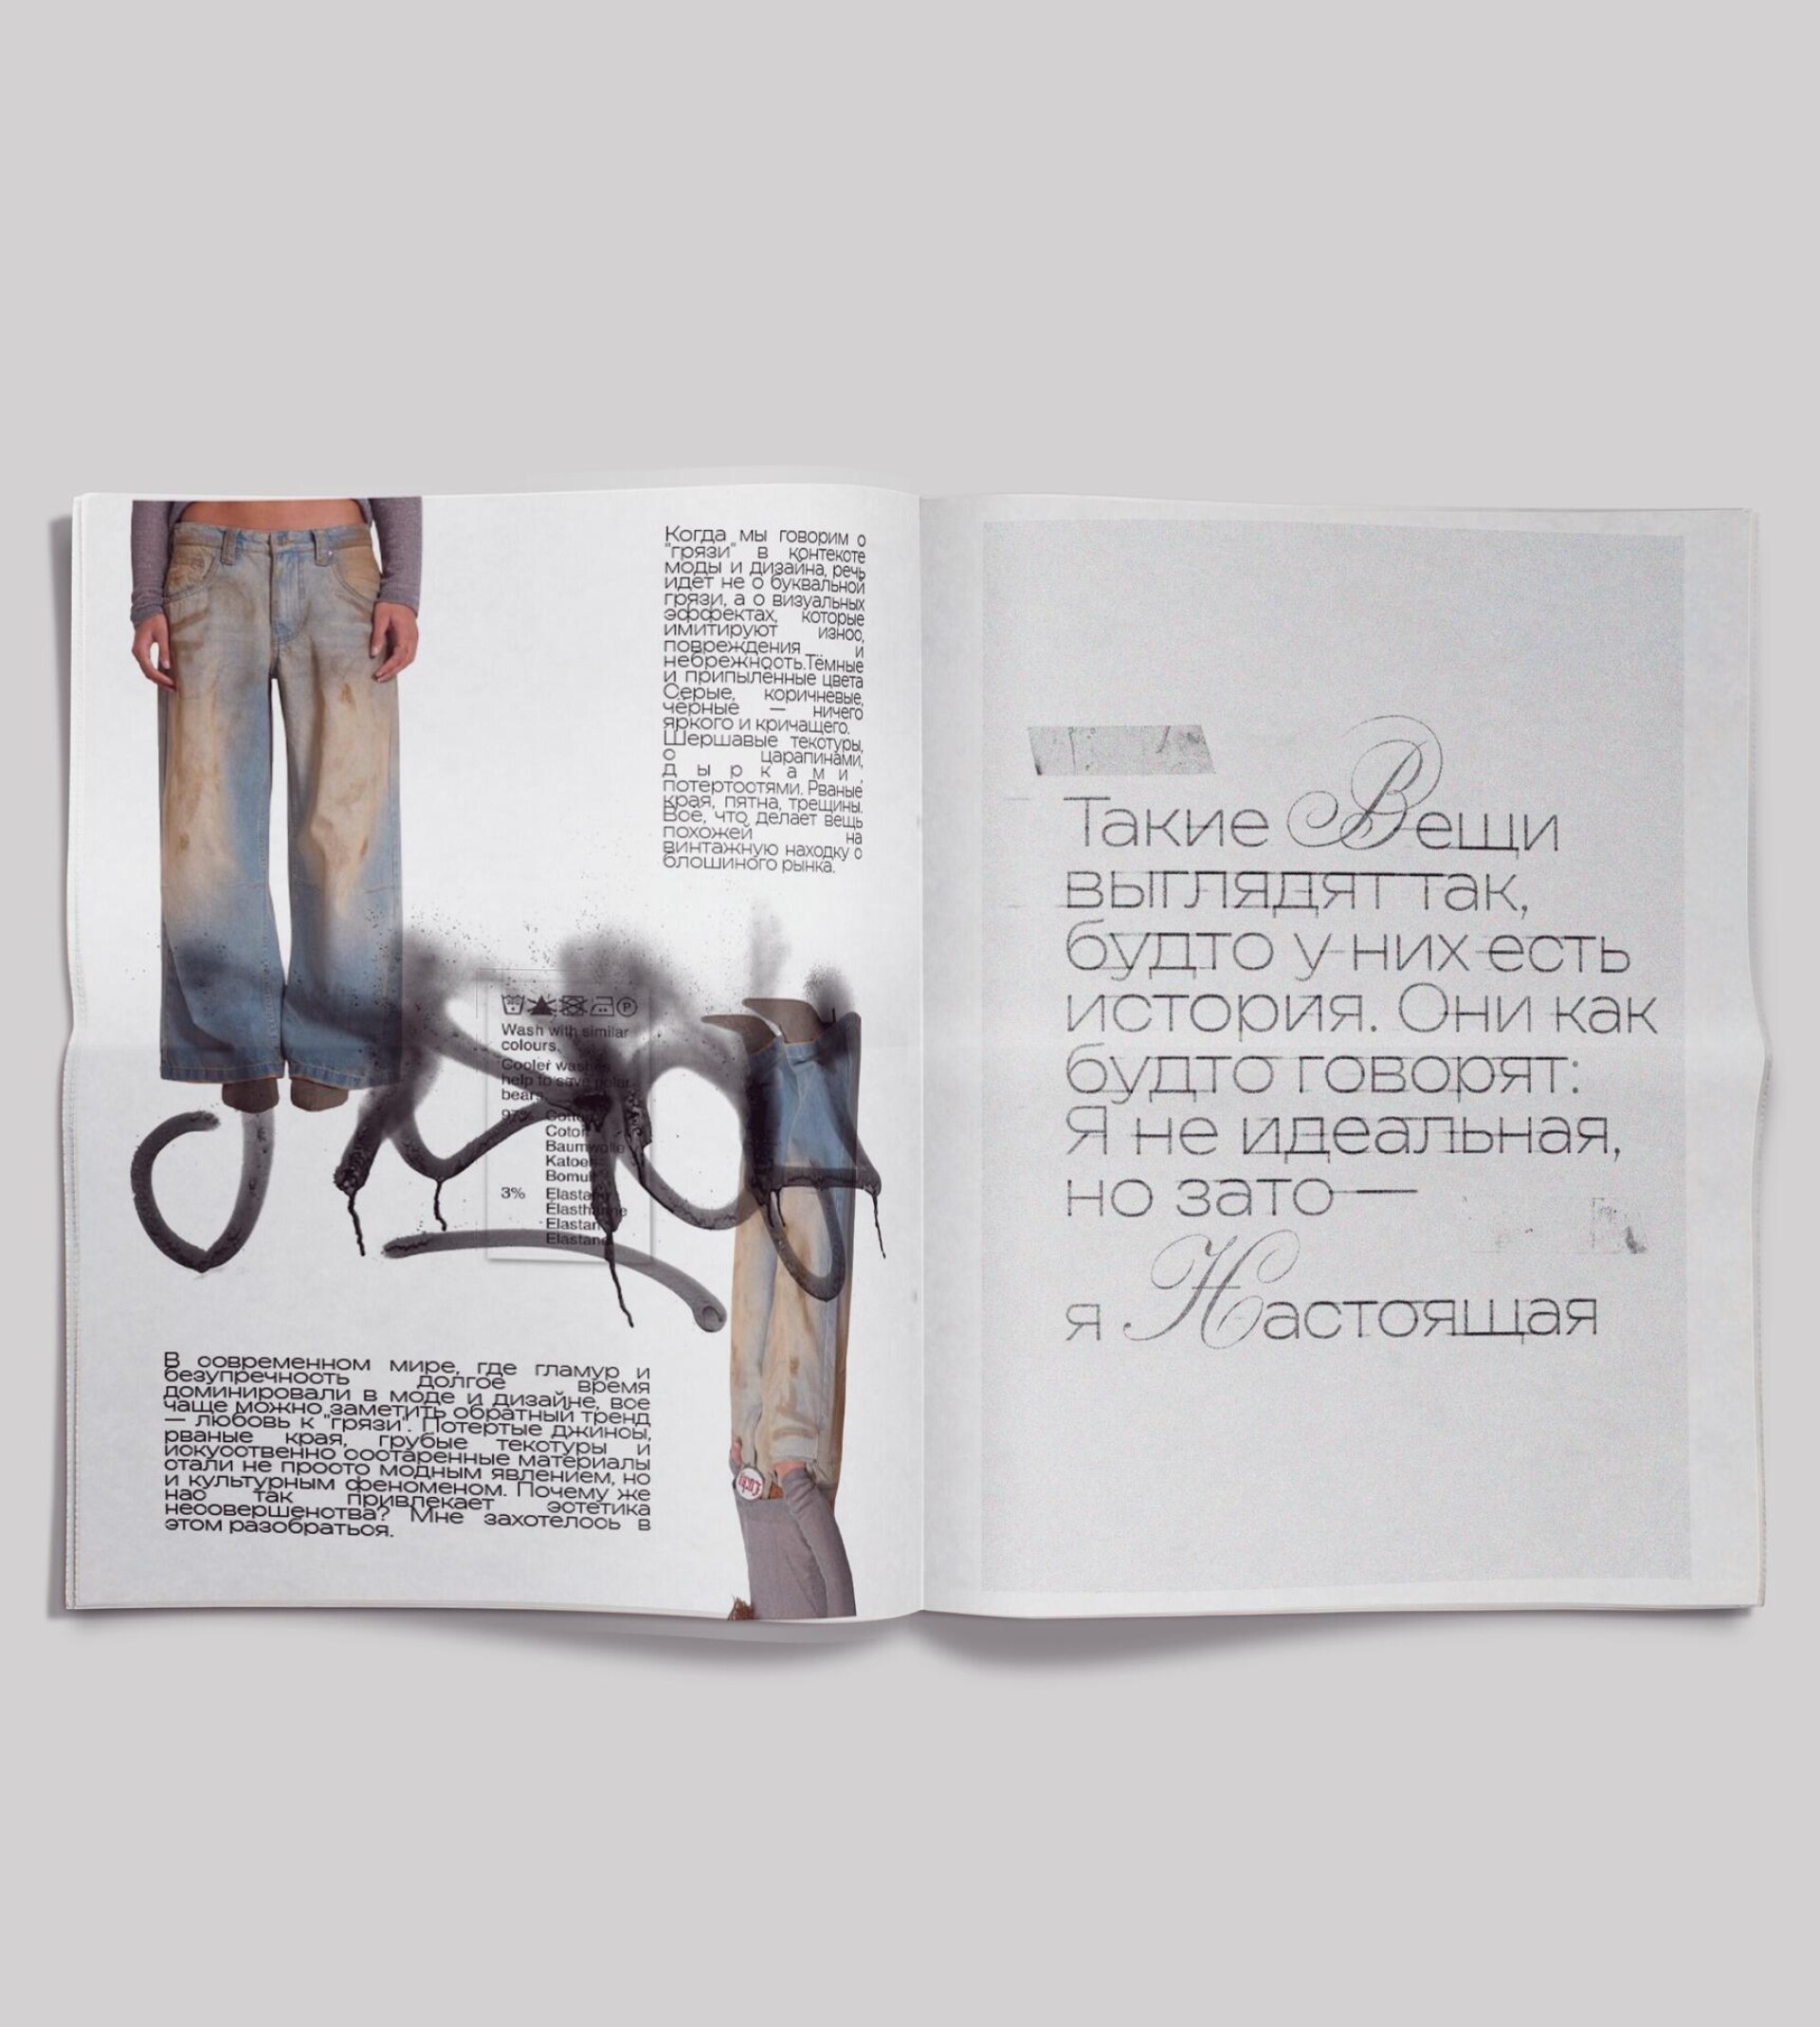 Когда мы говорим о
"грязи" в контексте
моды и дизайна, речь
идёт не о буквальной
грязи, а о визуальных
эффектах, которые
имитируют износ,
повреждения и
небрежность.Тёмные
и припыленные цвета
Серые, коричневые,
чёрные — ничего
яркого и кричащего.
Шершавые текстуры,
с царапинами,
дырками,
потертостями. Рваные
края, пятна, трещины.
Все, что делает вещь
похожей на
винтажную находку с
блошиного рынка.
Wash with similar
colours.
Cooler washes
help to save polar
bears
97% Cotton
Coton
Baumwolle
Katoen
3% Elastane
Élasthanne
Elastan
Elastane
В современном мире, где гламур и
безупречность долгое время
доминировали в моде и дизайне, все
чаще можно заметить обратный тренд
— любовь к "грязи". Потертые джинсы,
рваные края, грубые текстуры и
искусственно состаренные материалы
стали не просто модным явлением, но
и культурным феноменом. Почему же
нас так привлекает эстетика
несовершенства? Мне захотелось в
этом разобраться.
Такие Вещи
выглядят так,
будто у них есть
история. Они как
будто говорят:
Я не идеальная,
но зато—
я Настоящая